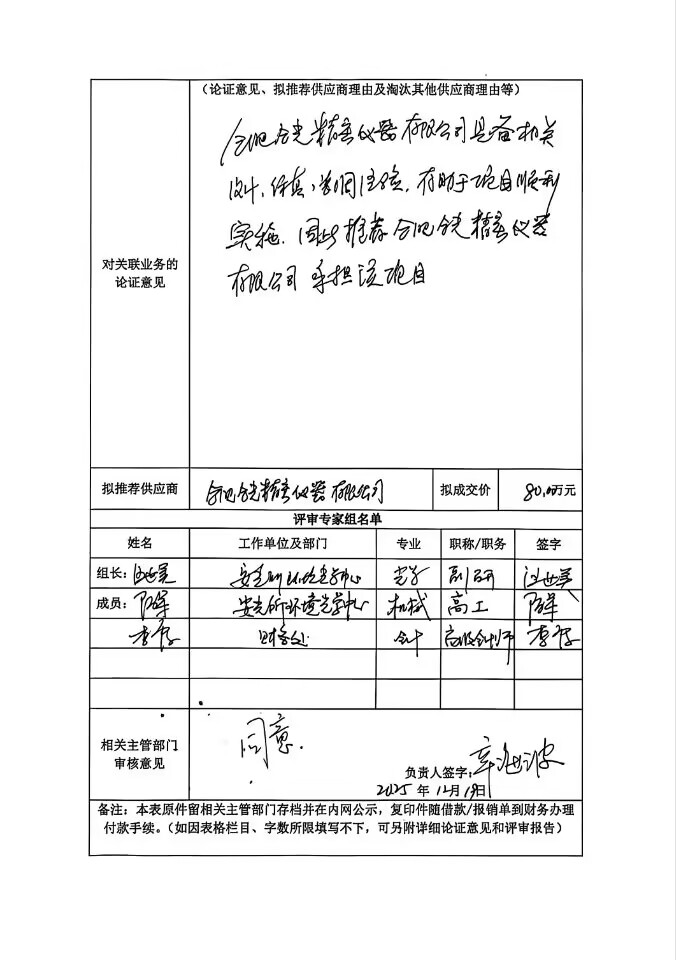 （论证意见、拟推荐供应商理由及淘汰其他供应商理由等）
合肥合光精密仪器有限公司具备相关
设计、仿真、装调经验，有助于项目顺利
实施。因此推荐合肥合光精密仪器
有限公司承担该项目
对关联业务的
论证意见
拟推荐供应商 合肥合光精密仪器有限公司 拟成交价 80.00万元
评审专家组名单
姓名 工作单位及部门 专业 职称/职务 签字
组长： 安光所环境光学中心 光学 副研
成员： 安光所环境光学中心 机械 高工
财务处 会计 高级会计师
相关主管部门
审核意见
同意.
负责人签字：
2025 年 12 月 19日
备注：本表原件留相关主管部门存档并在内网公示，复印件随借款/报销单到财务办理
付款手续。（如因表格栏目、字数所限填写不下，可另附详细论证意见和评审报告）